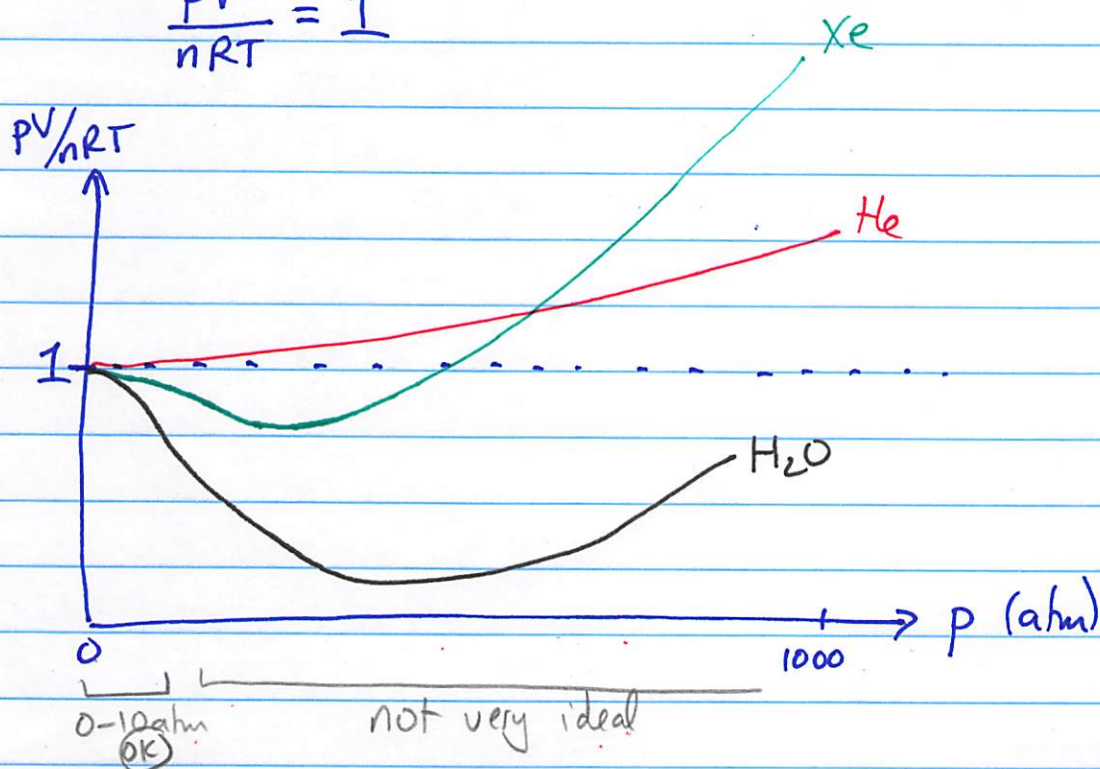 PV
nRT = 1
Xe
PV/nRT
He
1
H₂O
0
1000
p (atm)
0-10atm
OK
not very ideal